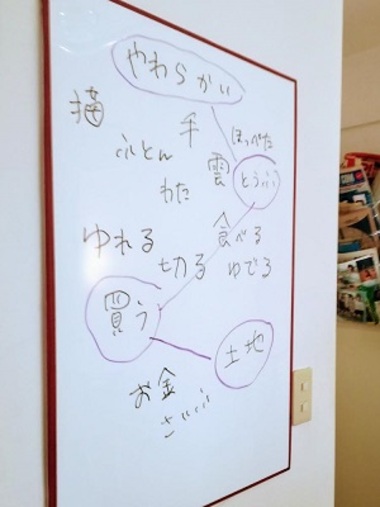 やわらかい
描
手
ほっぺた
ふとん
雲
とうふ
わた
食べる
ゆれる
切る
ゆでる
買う
土地
お金
さいふ